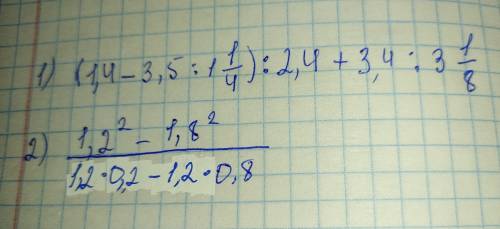 1) (1,4 - 3,5 : 1 1/4) : 2,4 + 3,4 : 3 1/8
2) 1,2² - 1,8²
1,2 · 0,2 - 1,2 · 0,8